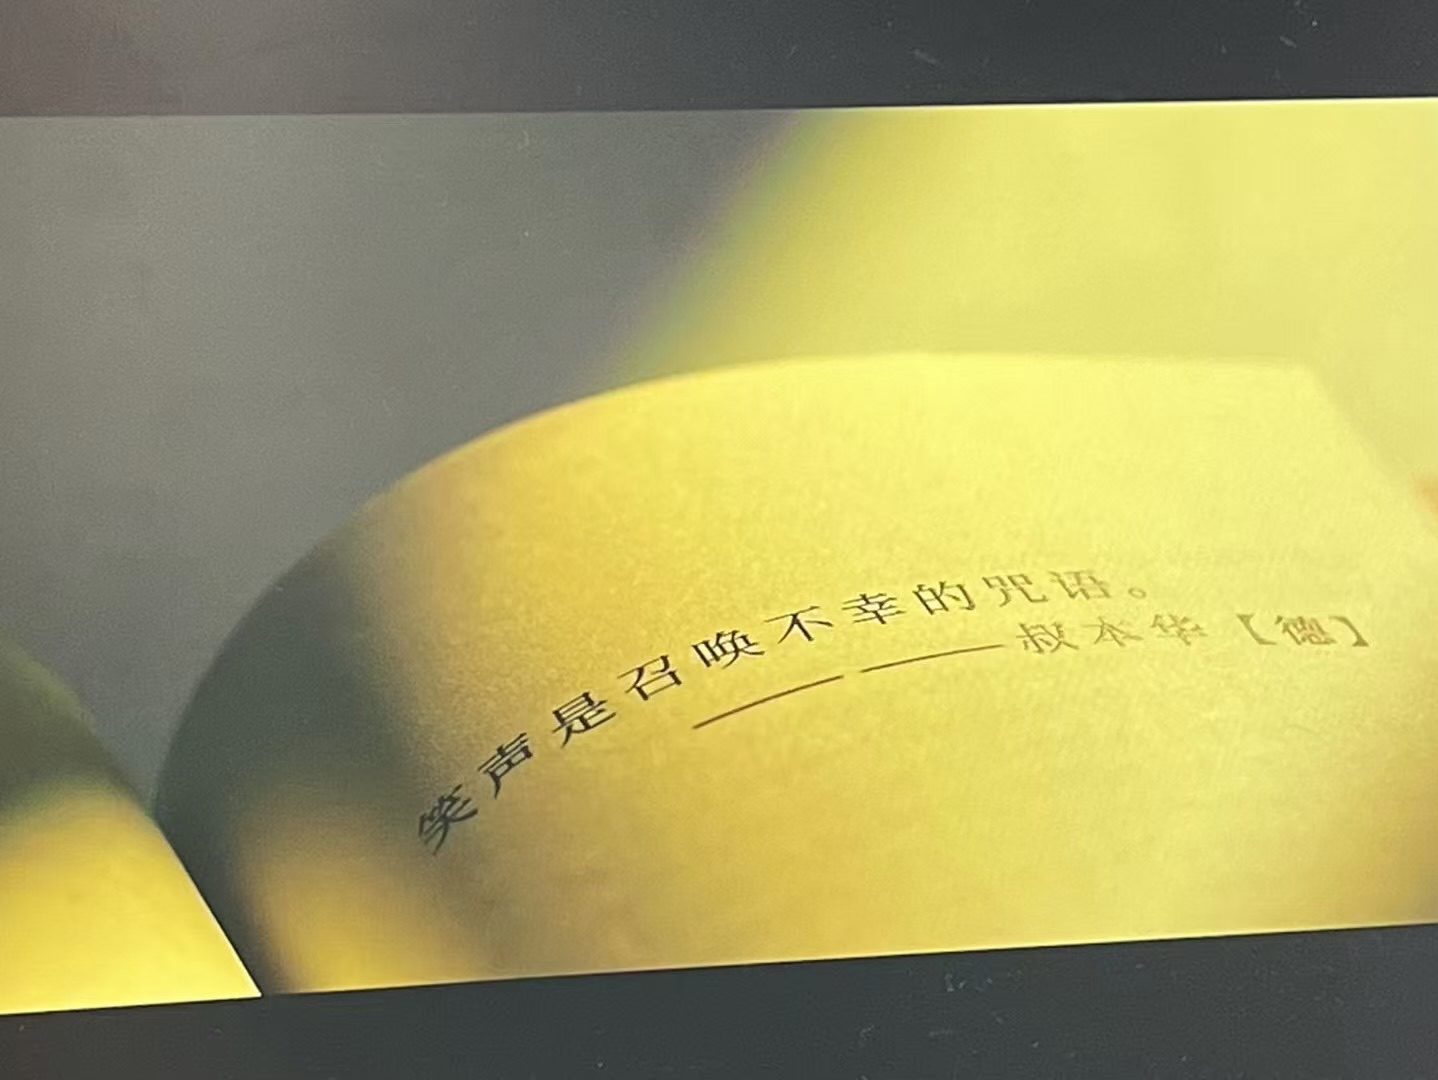 笑声是召唤不幸的咒语。
——叔本华【德】